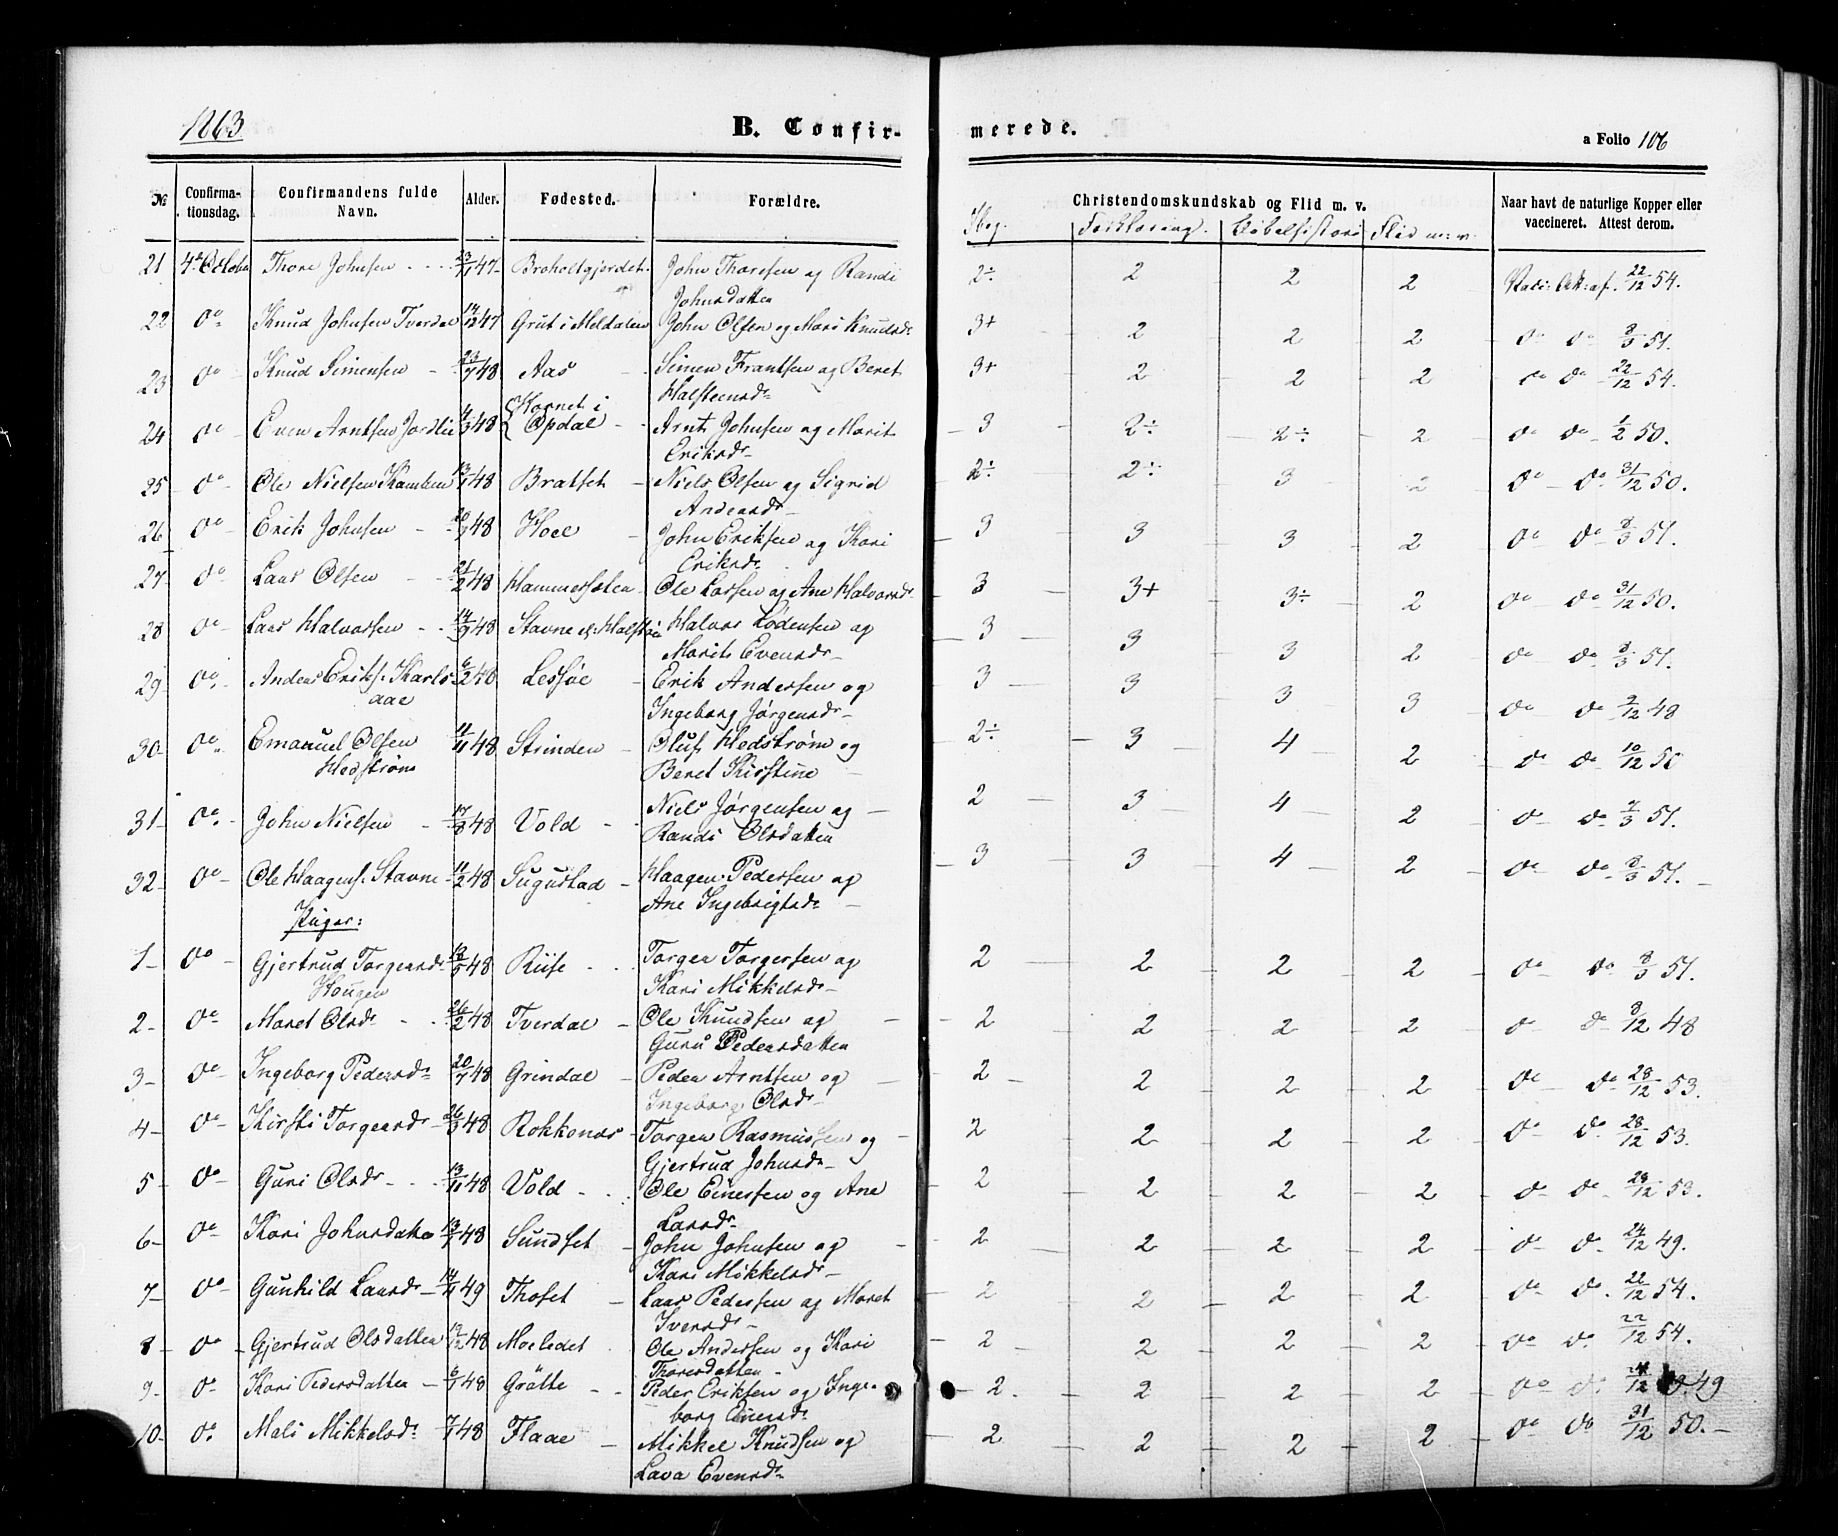 1863
B. Confir-
merede.
a Folio 106
№
Confirma-
tionsdag.
Confirmandens fulde
Navn.
Alder.
Fødested.
Forældre.
Christendomskundskab og Flid m. v.
Ibog. Forklaring. Bibelhistorie Flid m. v.
Naar havt de naturlige Kopper eller
vaccineret. Attest derom.
21 4de October Thore Johnsen 23/1 47 Broholtgjerdet John Thoresen og Randi 2÷ 2 2 2 22/12 54.
Johnsdatter
22 do Knud Johnsen Tverdal 14/12 47 Grut i Meldalen John Olsen og Mari Knudsdr 3+ 2 2 2 do do 8/3 51.
23 do Knud Simensen 23/7 48 Aas Simen Frantsen og Beret 3+ 2 2 2 do do 22/12 54.
Halsteensdr
24 do Even Arntsen Jordlie 4/3 48 Hornet i Opdal Arnt Johnsen og Marit 3 2÷ 2÷ 2 do do 1/2 50.
Eriksdr
25 do Ole Nielsen Kamben 13/1 48 Bratset Niels Olsen og Sigrid 2÷ 2÷ 3 2 do do 31/12 50.
Andersdr
26 do Erik Johnsen 48 Hoel John Eriksen og Kari 3 3 3 2 do do 8/3 51.
Eriksdr
27 do Lars Olsen 21/2 48 Hammersæten Ole Larsen og Ane Halvorsdr 3 3+ 3÷ 2 do do 31/12 50.
28 do Lars Halvorsen 14/9 48 Stavne Halvor Lodensen og 3 3 3 2 do do 8/3 51.
Marit Evensdr
29 do Anders Eriks. Karls- 6/2 48 Lessøe Erik Andersen og 3 3 3 3 do do 9/12 48
aae Ingeborg Jørgensdr
30 do Emanuel Olsen 11/11 48 Strinden Oluf Hedstrøm og 2÷ 3 4 2 do do 10/12 50
Hedstrøm Beret Kirstine
31 do John Nielsen 17/8 48 Vold Niels Jørgensen og 2 3 4 2 do do 51.
Randi Olsdatter
32 do Ole Haagens. Stavne 11/2 48 Sugustad Haagen Pedersen og 3 3 4 2 do do 8/3 51.
Ane Ingebrigtsdr
Piger:
1 do Gjertrud Torgersdr 48 Riise Torger Torgersen og 2 2 2 2 do do 8/3 51.
Hougen Kari Mikkelsdr
2 do Maret Olsdr 26/2 48 Tverdal Ole Knudsen og 2 2 2 2 do do 9/12 48
Guru Pedersdatter
3 do Ingeborg Pedersdr 20/7 48 Grindal Peder Arntsen og 2 2 2 2 do do 28/12 53.
Ingeborg Olsdr
4 do Kirsti Torgersdr 26/3 48 Rokkones Torger Rasmussen og 2 2 2 2 do do 28/12 53.
Gjertrud Johnsdr
5 do Guri Olsdr 13/11 48 Vold Ole Einersen og Ane 2 2 2 2 do do 28/12 53.
Larsdr
6 do Kari Johnsdatter 13/7 48 Sundset John Johnsen og 2 2 2 2 do do 24/12 49.
Kari Mikkelsdr
7 do Gunhild Larsdr 49 Thoset Lars Pedersen og Maret 2 2 2 2 do do 22/12 54.
Iversdr
8 do Gjertrud Olsdatter 12/12 48 Moesledet Ole Andersen og Kari 2 2 2 2 do do 22/12 54.
Thoresdatter
9 do Kari Pedersdatter 6/1 48 Grötte Peder Eriksen og Inge- 2 2 2 2 do do 49
borg Einersdr
10 do Mali Mikkelsdr 7/1 48 Flaae Mikkel Knudsen og 2 2 2 2 do do 31/12 50.
Lava Evensdr